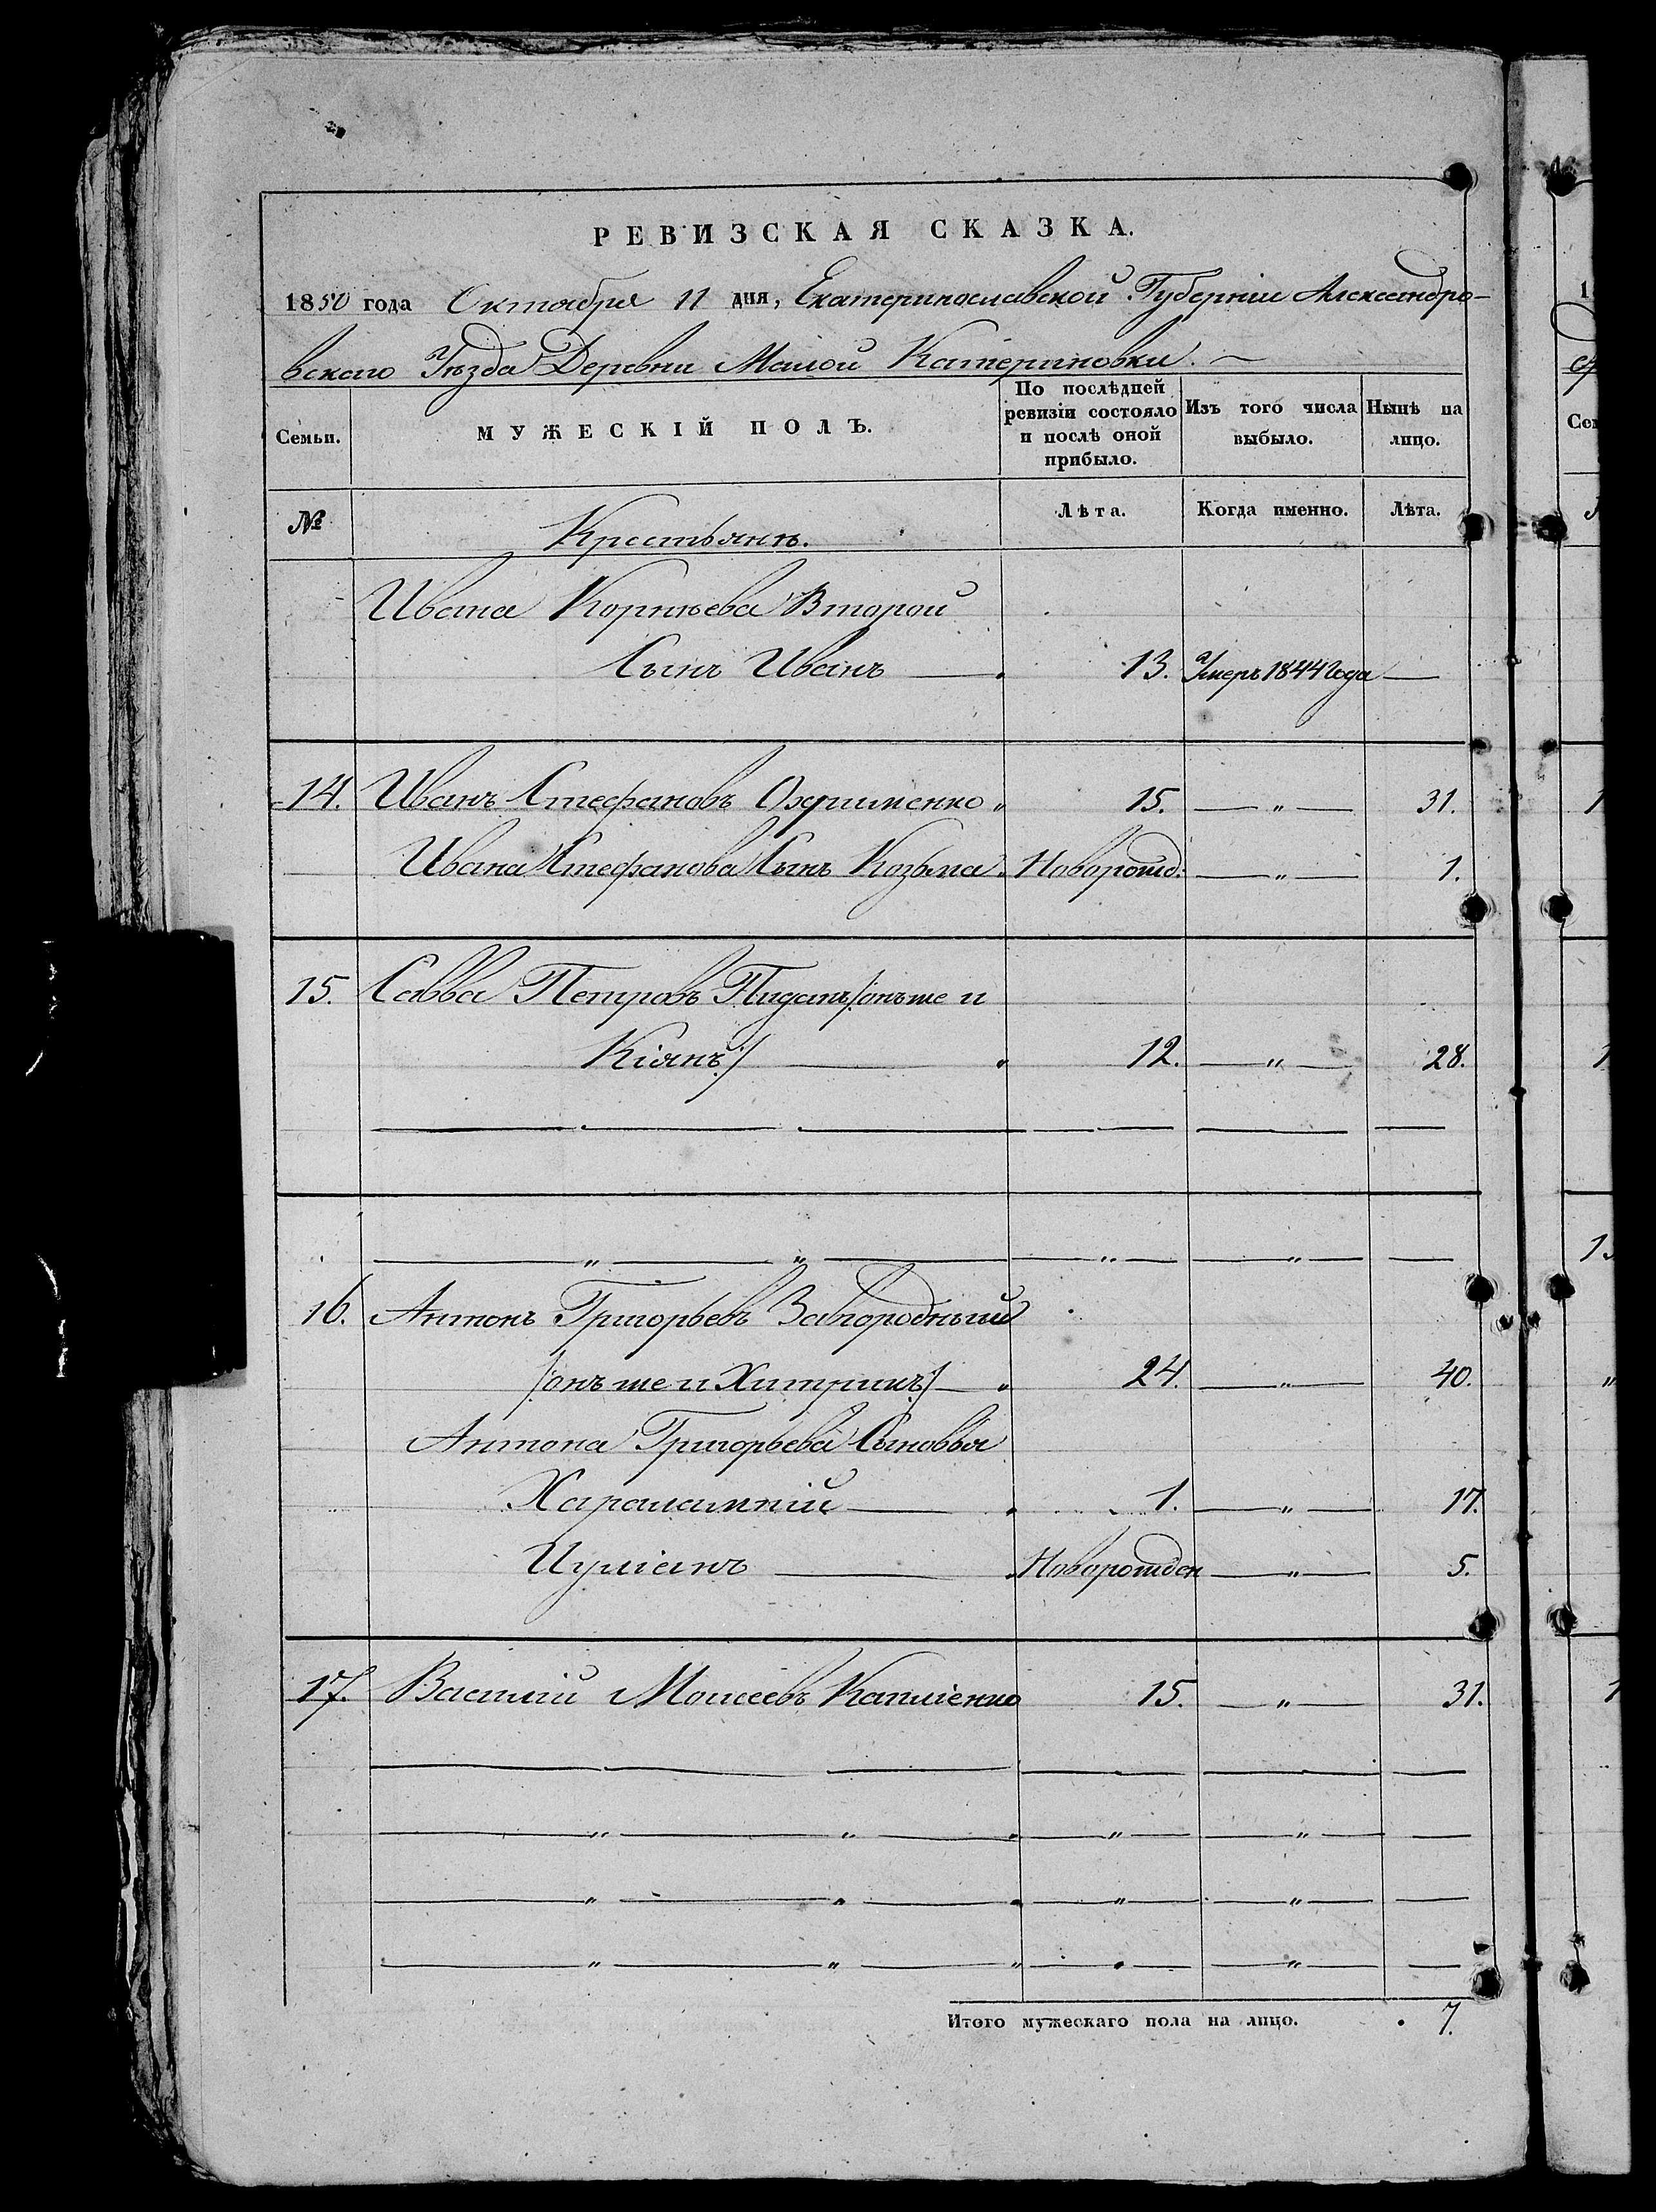 РЕВИЗСКАЯ СКАЗКА.
1850 года Октября 11 дня, Екатеринославской Губерніи Александро-
вскаго Уѣзда Деревни Малой Катериновки.
Семьи. МУЖЕСКІЙ ПОЛЪ. По послѣдней ревизіи состояло и послѣ оной прибыло. Изъ того числа выбыло. Нынѣ на лицо.
№ Крестьянъ. Лѣта. Когда именно. Лѣта.
Ивана Корнѣева Второй
Сынъ Иванъ 13. Умеръ 1844 года
14. Иванъ Стефановъ 15. 31.
Ивана Стефанова Сынъ КозьмаНоворожд: 1.
15. Савва Петровъ /:онъ же и
Кіянъ:/ 12. 28.
16. Антонъ Григорьевъ Загородный
/:онъ же и Хитрикъ:/ 24. 40.
Антона Григорьева Сыновья
Харалампій 1. 17.
Иуліанъ Новорожден 5.
17. Василій Моисеевъ 15. 31.
Итого мужескаго пола на лицо. 7.